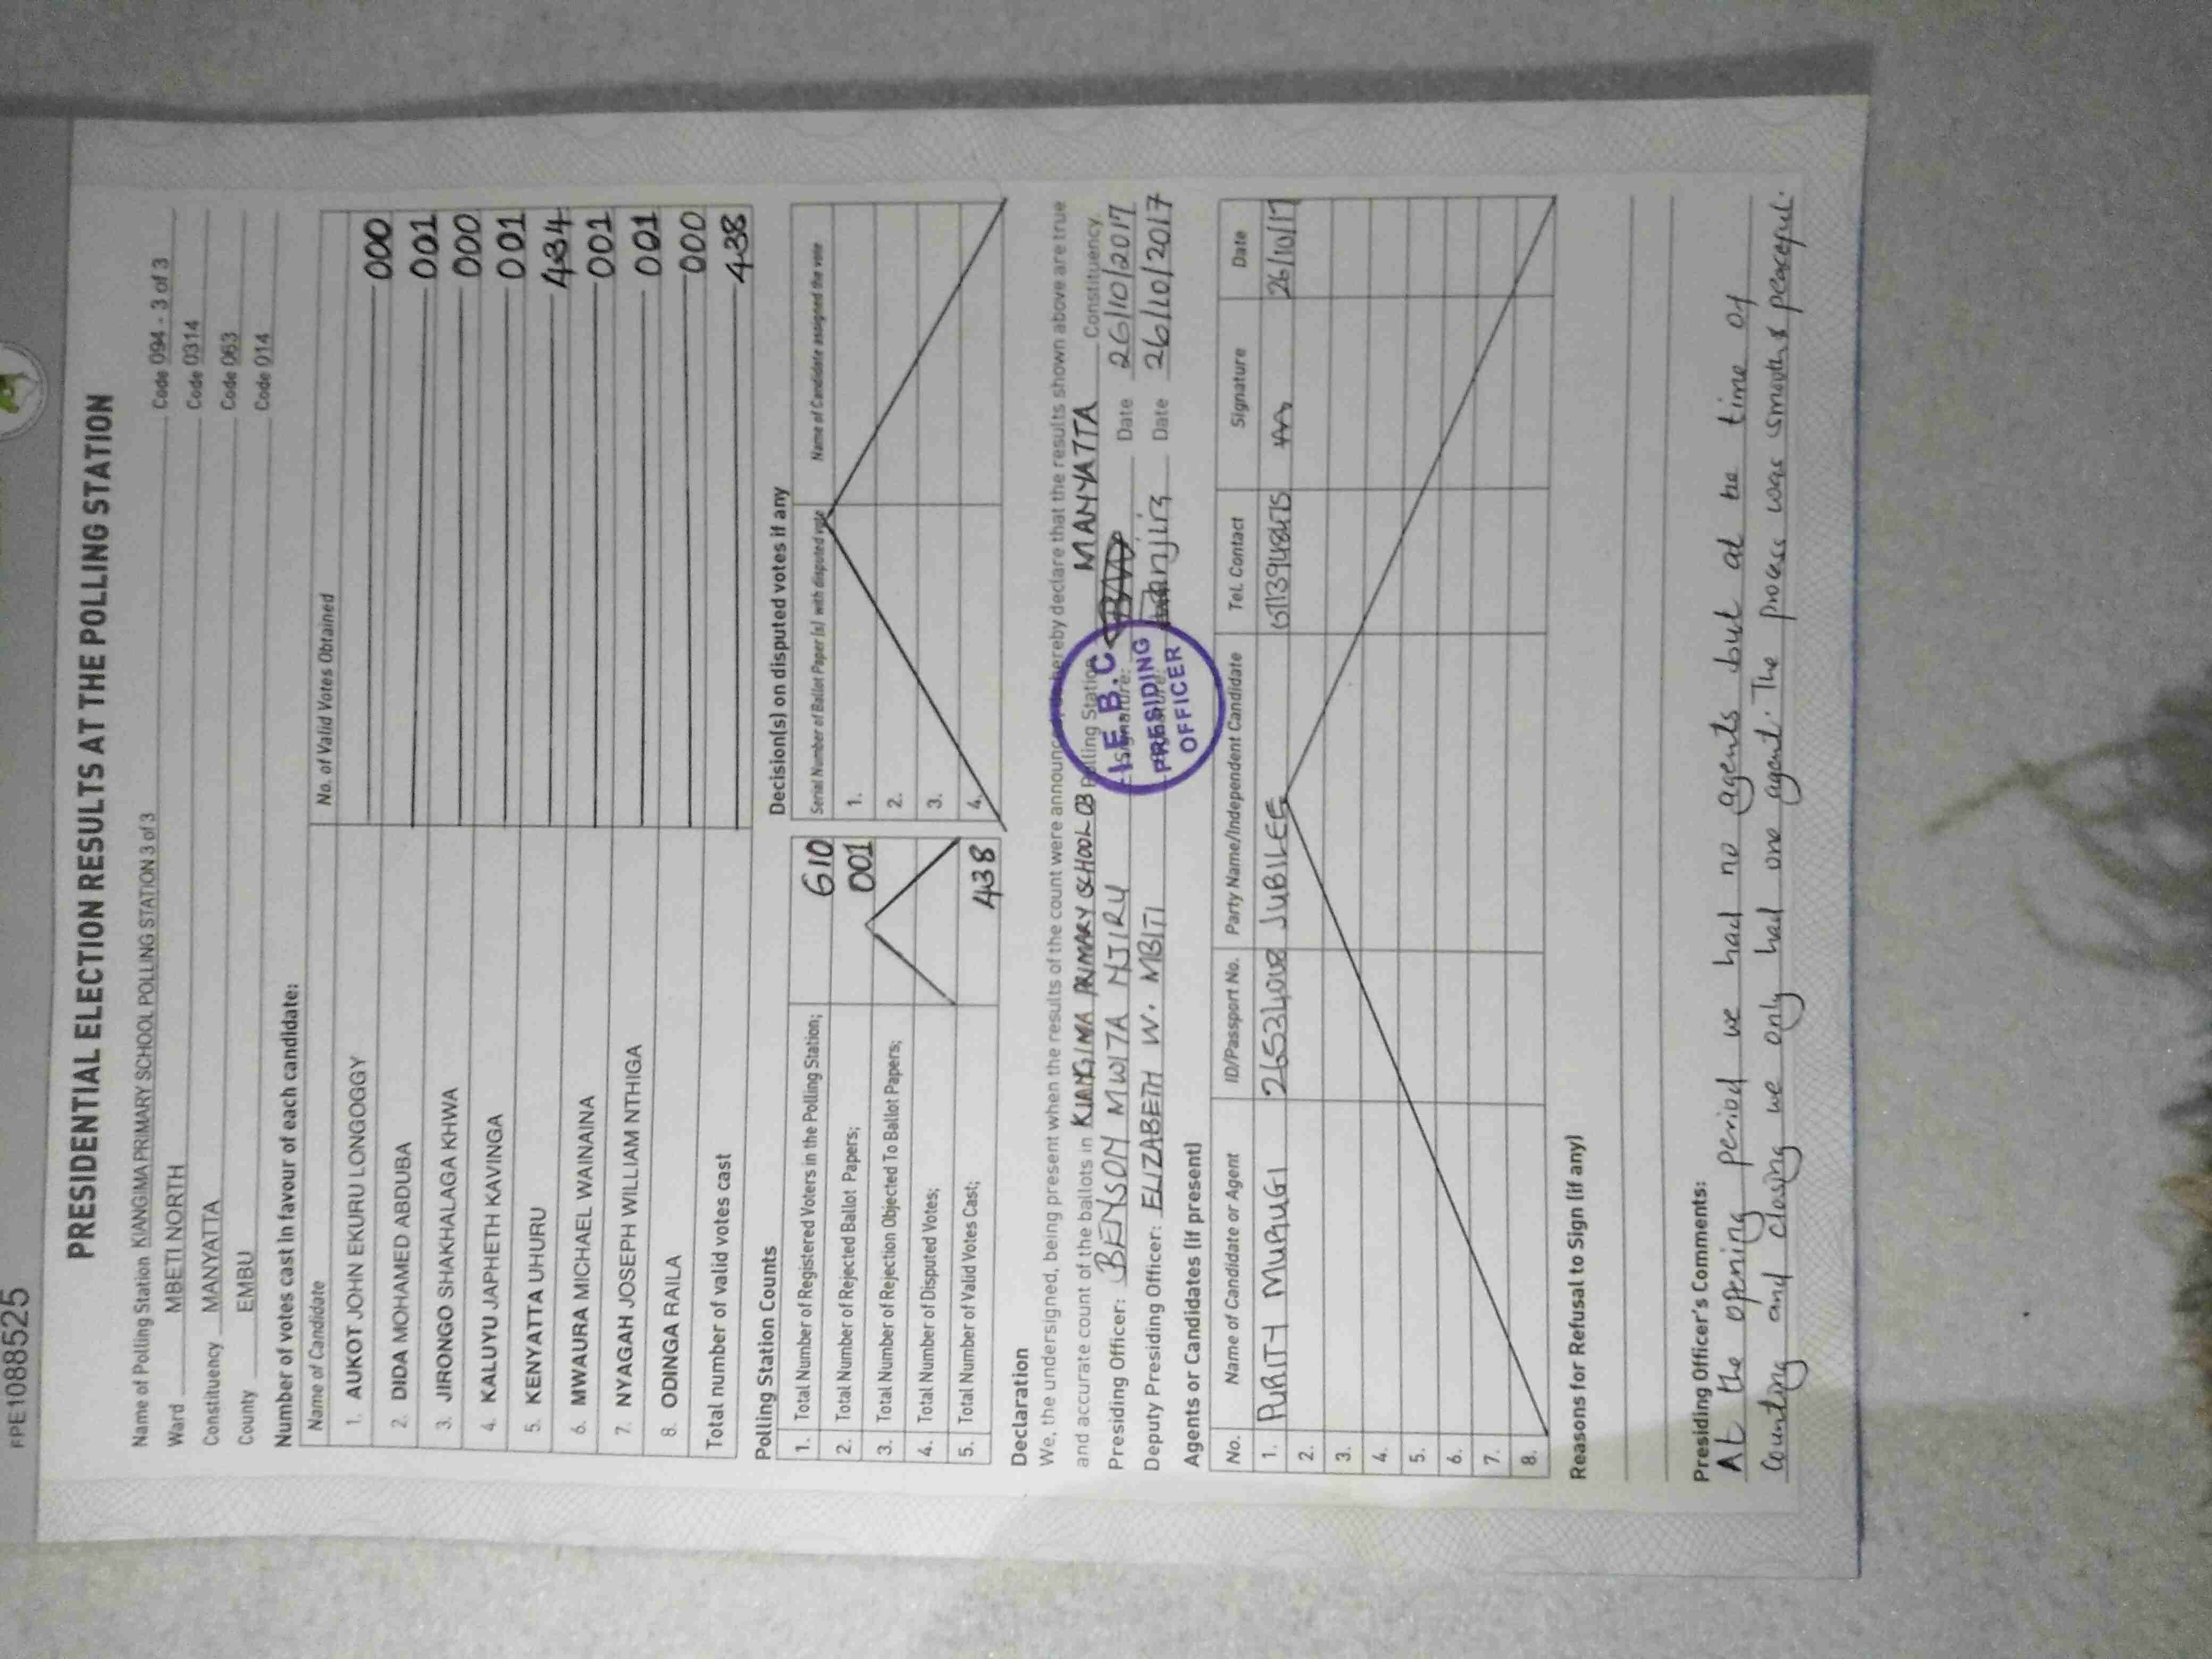 PRE1088525
PRESIDENTIAL ELECTION RESULTS AT THE POLLING STATION
Name of Polling Station KIANGIMA PRIMARY SCHOOL POLLING STATION 3 of 3 Code 094 - 3 of 3
Ward MBETI NORTH Code 0314
Constituency MANYATTA Code 063
County EMBU Code 014
Number of votes cast in favour of each candidate:
Name of Candidate No. of Valid Votes Obtained
1. AUKOT JOHN EKURU LONGOGGY 000
2. DIDA MOHAMED ABDUBA 001
3. JIRONGO SHAKHALAGA KHWA 000
4. KALUYU JAPHETH KAVINGA 001
5. KENYATTA UHURU 434
6. MWAURA MICHAEL WAINAINA 001
7. NYAGAH JOSEPH WILLIAM NTHIGA 001
8. ODINGA RAILA 000
Total number of valid votes cast 438
Polling Station Counts
1. Total Number of Registered Voters in the Polling Station; 610
2. Total Number of Rejected Ballot Papers; 001
3. Total Number of Rejection Objected To Ballot Papers;
4. Total Number of Disputed Votes;
5. Total Number of Valid Votes Cast; 438
Decision(s) on disputed votes if any
Serial Number of Ballot Paper (s) with disputed vote Name of Candidate assigned the vote
1.
2.
3.
4.
Declaration
We, the undersigned, being present when the results of the count were announced, do hereby declare that the results shown above are true
and accurate count of the ballots in KIANGIMA PRIMARY SCHOOL 03 Polling Station MANYATTA Constituency.
Presiding Officer: BENSON MWITA NJIRU Signature: Date 26/10/2017
Deputy Presiding Officer: ELIZABETH W. MBITI Date 26/10/2017
I.E.B.C
PRESIDING
OFFICER
Agents or Candidates (if present)
No. Name of Candidate or Agent ID/Passport No. Party Name/Independent Candidate Tel. Contact Signature Date
1. PURITY MURUGI 26534018 JUBILEE 26/10/17
2.
3.
4.
5.
6.
7.
8.
Reasons for Refusal to Sign (if any)
Presiding Officer's Comments:
At the opening period we had no agents but at the time of
counting and closing we only had one agent. The process was smooth & peaceful.